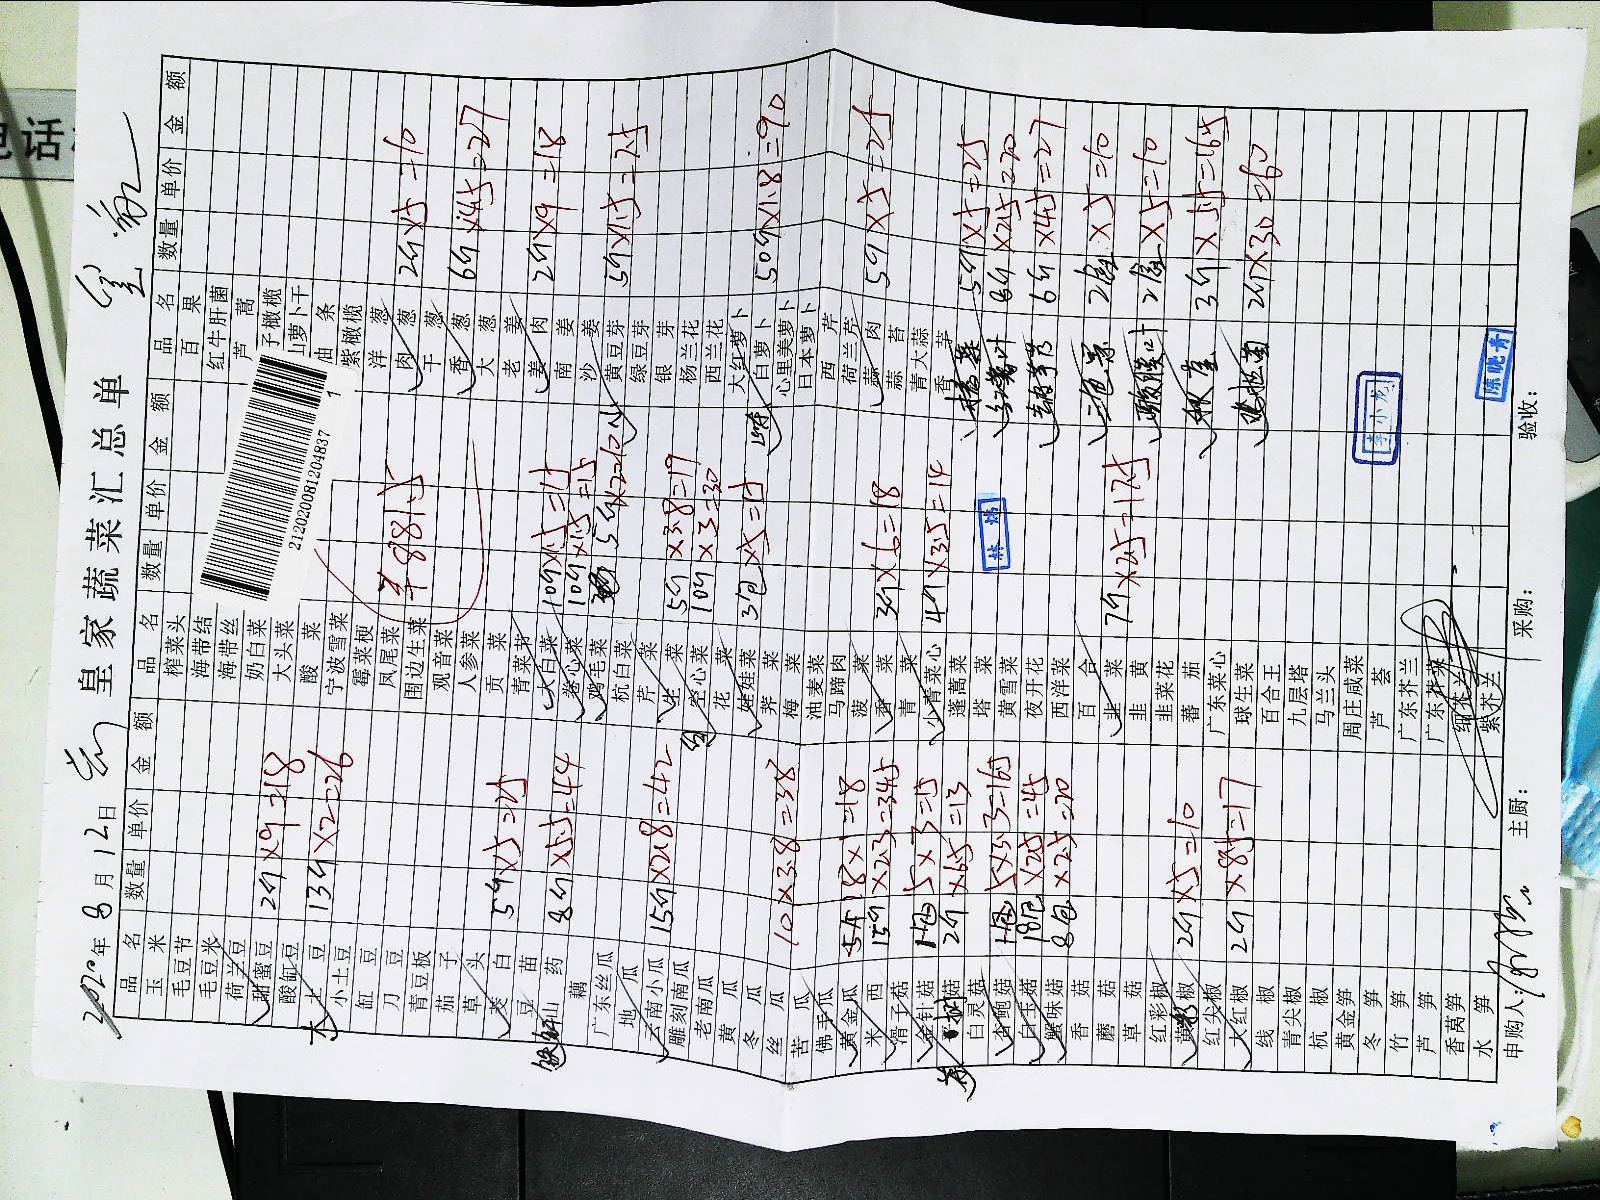 皇家蔬菜汇总单
2020年8月12日
品名 数量 单价 金额
玉米
毛豆节
毛豆米
荷兰豆
甜蜜豆 2斤×9=18
酸缸豆
大土豆 13斤×2=26
小土豆
缸豆
刀豆
青豆板
茄子
草头
茭白 5斤×5=25
豆苗
山药 8斤×5.5=44
藕
广东丝瓜
地瓜
云南小瓜 15斤×2.8=42
雕刻南瓜
老南瓜
黄瓜
冬瓜
丝瓜 10×3.8=38
苦瓜
佛手瓜
黄金瓜 18×1=18
米西 15斤×2.3=34.5
滑子菇
金针菇 5×3=15
2斤×6.5=13
白灵菇
杏鲍菇 5×3.3=16.5
白玉菇 18包×2.5=45
蟹味菇 8包×2.5=20
香菇
蘑菇
草菇
红彩椒
黄彩椒 2斤×5=10
红尖椒
大红椒 2斤×8.5=17
线椒
青尖椒
杭椒
黄金笋
冬笋
竹笋
芦笋
香莴笋
水笋
品名 数量 单价 金额
榨菜头
海带结
海带丝
奶白菜
大头菜
酸菜
宁波雪菜
霉菜梗
凤尾菜
围边生菜
观音菜
人参菜
贡菜
青菜芯
大白菜 10斤×1.5=15
卷心菜 10斤×1.5=15
鸡毛菜 5斤×2=10
杭白菜
芹菜
生菜 5斤×3.8=19
空心菜 10斤×3=30
花菜
娃娃菜 3包×5=15
荠菜
梅菜
油麦菜
马蹄肉
菠菜
香菜 3斤×6=18
青菜
小青菜心 4斤×3.5=14
蓬蒿菜
塔菜
黄雪菜
夜开花
西洋菜
百合
韭菜 7斤×2.5=17.5
韭黄
韭菜花
番茄
广东菜心
球生菜
百合王
九层塔
马兰头
周庄咸菜
芦荟
广东芥兰
广东芥菜
细芥兰
紫芥兰
¥881.5
2120200812048371
品名 数量 单价 金额
百果
红牛肝菌
芦蒿
子橄榄
山萝卜干
油条
紫橄榄
洋葱
肉葱 2斤×5=10
干葱
香葱 6斤×4.5=27
大葱
老姜
姜肉 2斤×9=18
南姜
沙姜
黄豆芽 5斤×1.5=7.5
绿豆芽
银芽
杨兰花
西兰花
大红萝卜
白萝卜 50斤×1.8=90
心里美萝卜
日本萝卜
西芹
荷兰芹
蒜肉 5斤×5=25
蒜苔
青大蒜
香芋
5斤×5=25
8斤×2.5=20
6斤×4.5=27
2盒×5=10
2盒×5=10
3斤×5.5=16.5
2斤×30=60
林炳
李小龙
陈晓青
申购人：
主厨：
采购：
验收：
电话